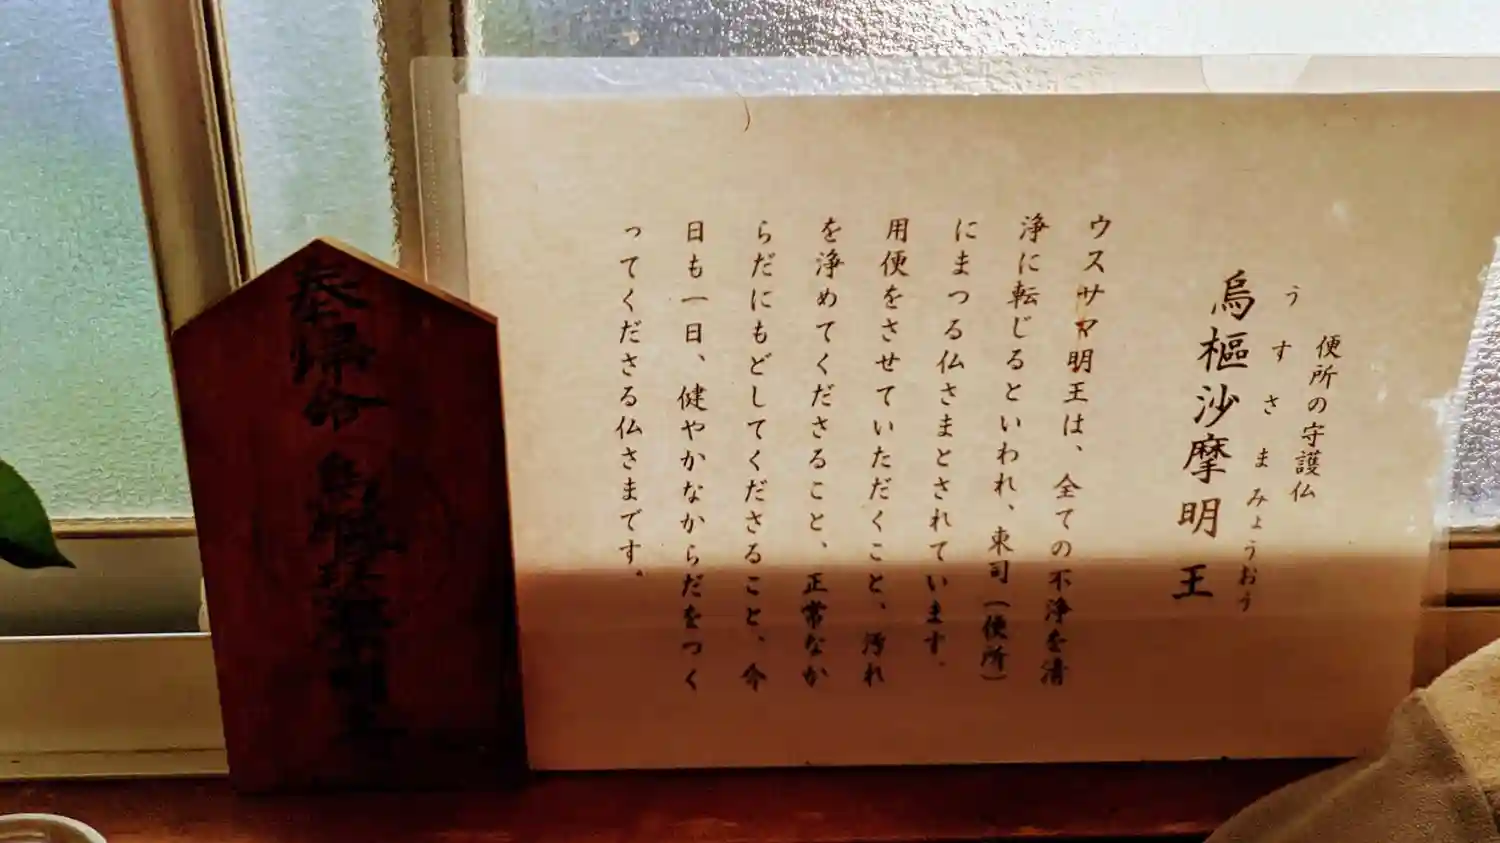 便所の守護仏
うすさまみょうおう
烏樞沙摩明王
ウスサマ明王は、全ての不浄を清
浄に転じるといわれ、東司（便所）
にまつる仏さまとされています。
用便をさせていただくこと、汚れ
を浄めてくださること、正常なか
らだにもどしてくださること、今
日も一日、健やかなからだをつく
ってくださる仏さまです。
奉帰命烏樞沙摩明王